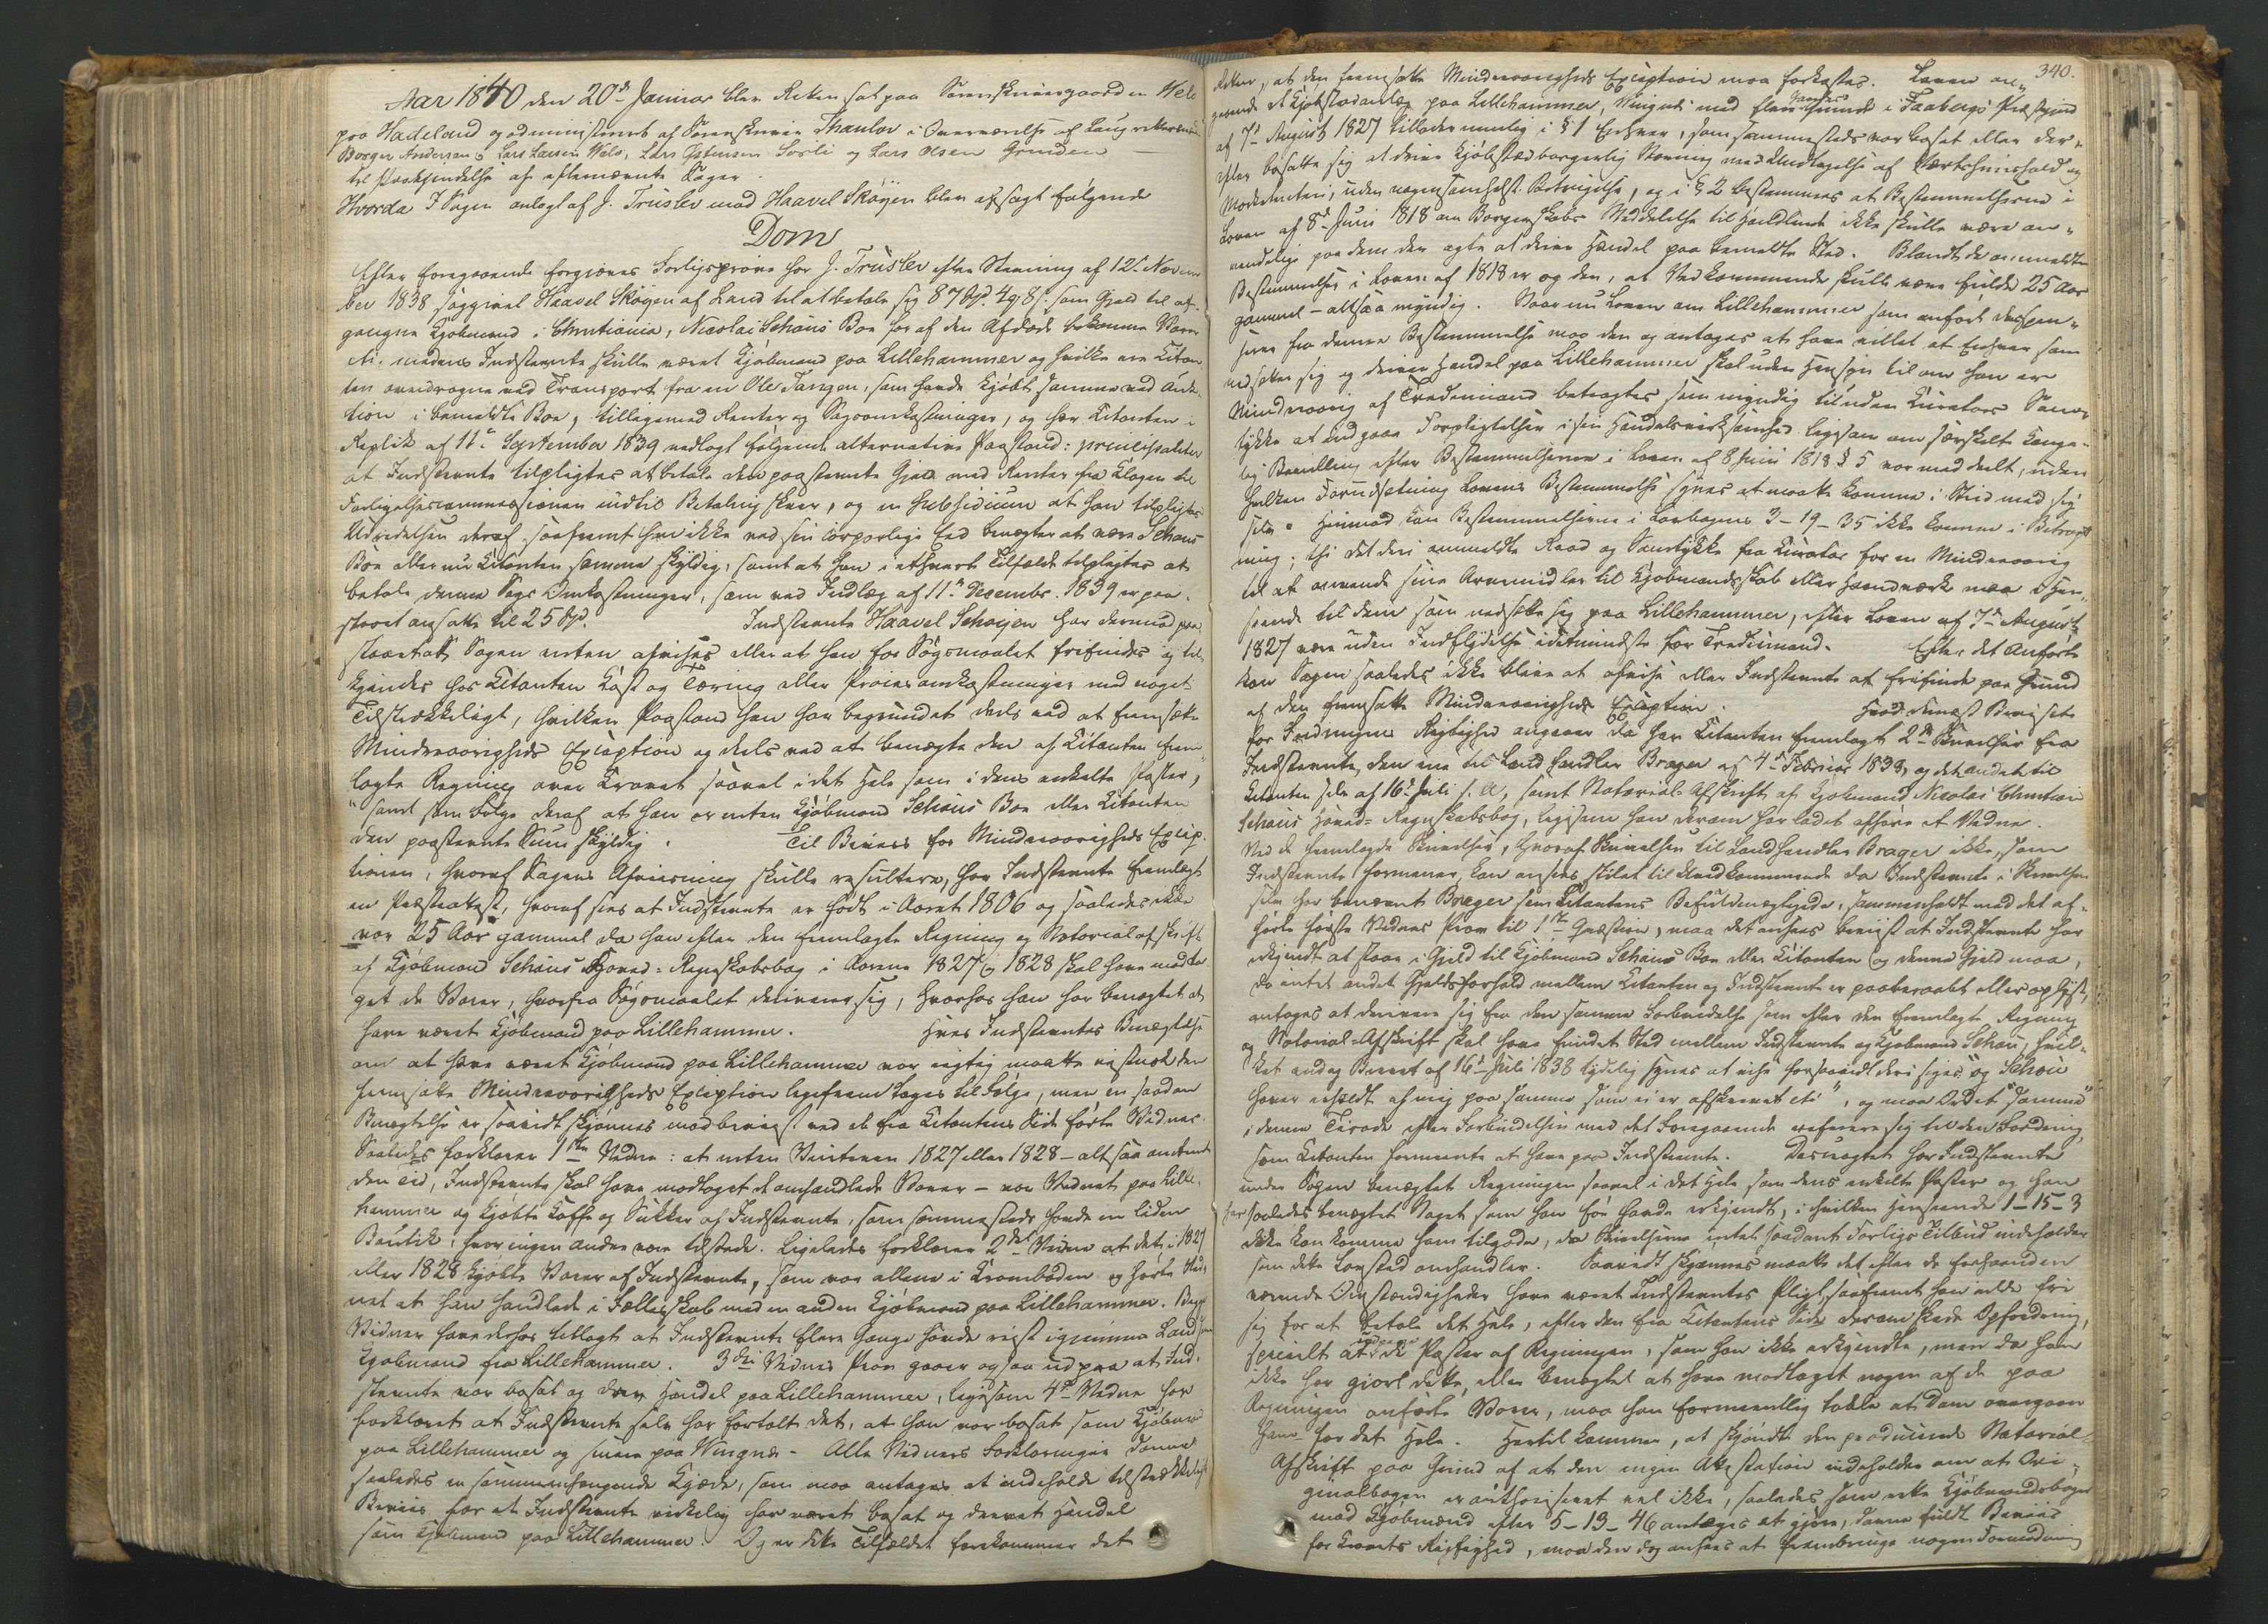 Aar 1840 den 20de Januar blev Retten sat paa Sorenskrivergaarden Velo
paa Hadeland og administreret af Sorenskriver Thaulov i Overværelse af Laugrettesmænd
Borger Andersen, Lars Larsen Velo, Lars Estensen Sorli og Lars Olsen Grinden
til Paakjendelse af efternævnte Sager.
Hvorda I Sagen anlagt af J. Trüslev mod Haavel Skøyen blev afsagt følgende
Dom
Efter foregaaende forgjæves Forligsprøve har J. Trüslev efter Stevning af 12te Novem
ber 1838 søggivet Haavel Skøyen af Land til at betale sig 87 Spd. 4 ß 8 s. som Gjeld til af-
gangne Kjøbmand i Christiania, Nicolai Schous Boe for af den Afdøde bekomne Vare
r, medens Indstevnte skulle været Kjøbmand paa Lillehammer og hvilke ere Citan
ten overdragne ved Transport fra en Ole Tangen, som havde kjøbt samme ved Auk-
tion i bemeldte Boe, tilligemed Renter og Sagsomkostninger, og har Citanten i
Replik af 11te September 1839 nedlagt følgende alternative Paastand: principaliter
at Indstevnte tilpligtes at betale den paastevnte Gjeld med Renter fra Klagen til
Forligelsescommissionen indtil Betaling skeer, og in subsidium at han tilpligtes
Udredelsen deraf, saafremt han ikke ved sin corporlige Eed benægter at være Schous
Boe eller nu Citanten samme skyldig, samt at han i ethvert Tilfælde tilpligtes at
betale denne Sags Omkostninger, som ved Indlæg af 11te Decembr. 1839 er paa-
staaet ansatte til 25 Spd. Indstevnte Haavel Schøyen har derimod paa
staaet at Sagen enten afvises eller at han for Søgsmaalet frifindes og til-
kjendes hos Citanten Kost og Tæring eller Procesomkostninger med noget
Tilstrækkeligt, hvilken Paastand han har begrundet deels ved at fremsætte
Mindreaarigheds Exception og deels ved at benægte den af Citanten frem-
lagte Regning over Kravet saavel i det Hele som i dens enkelte Poster,
samt som Følge deraf at han er enten Kjøbmand Schous Boe eller Citanten
den paastevnte Sum skyldig. Til Beviis for Mindreaarigheds Excep-
tionen, hvoraf Sagens Afviisning skulle resultere, har Indstevnte fremlagt
en Præsteattest, hvoraf sees at Indstevnte er født i Aaret 1806 og saaledes ikke
var 25 Aar gammel da han efter den fremlagte Regning og Notorialafskrift
af Kjøbmand Schous Hoved-Regnskabsbog i Aarene 1827 og 1828 skal have modta-
get de Varer, hvorfra Søgsmaalet deriverer sig, hvorhos han har benægtet at
have været Kjøbmand paa Lillehammer. Hvis Indstevntes Benægtelse
om at have været Kjøbmand paa Lillehammer var rigtig maatte vistnok den
fremsatte Mindreaarigheds Exception ligefrem tages til Følge, men en saadan
Benægtelse er saavidt skjønnes modbeviist ved de fra Citantens Side førte Vidner.
Saaledes forklarer 1ste Vidne: at enten Vinteren 1827 eller 1828 – altsaa omtrent
den Tid, Indstevnte skal have modtaget de omhandlede Varer – var Vidnet paa Lille-
hammer og kjøbte Kaffe og Sukker af Indstevnte, som sammesteds havde en liden
Boutik, hvor ingen anden var tilstede. Ligeledes forklarer 2det Vidne at det i 1827
eller 1828 kjøbte Varer af Indstevnte, som var allene i Kramboden og hørte Vid-
net at han handlede i Fællesskab med en anden Kjøbmand paa Lillehammer. Begge
Vidner have derhos tillagt at Indstevnte flere Gange havde reist igjennem Land som
Kjøbmand fra Lillehammer. 3die Vidnes Prov gaaer ogsaa ud paa at Ind-
stevnte var bosat og drev Handel paa Lillehammer, ligesom 4de Vidne har
forklaret at Indstevnte selv har fortalt det, at han var bosat som Kjøbmand
paa Lillehammer og senere paa Vingnæs. Alle Vidners Forklaringer danne
saaledes en sammenhængende Kjæde, som maa antages at indeholde tilstrækkeligt
Beviis for at Indstevnte virkelig har været bosat og drevet Handel
som Kjøbmand paa Lillehammer. Og er dette Tilfældet forekommer det
340.
Retten, at den fremsatte Mindreaarigheds Exception maa forkastes. Loven an-
gaaende et Kjøbstadanlæg paa Lillehammer, Vingnæs med flere Gaardes Grunde i Faabergs Præstegjeld
af 7de August 1827 tillader nemlig i § 1 Enhver, som sammesteds var bosat eller der-
efter bosatte sig at drive kjøbstadborgerlig Næring med Undtagelse af Værtshuushold og
Marketenteri, uden nogensomhelst Betingelse, og i § 2 bestemmes at Bestemmelserne i
Loven af 8de Juni 1818 om Borgerskabs Meddelelse til Handlende ikke skulle være an-
vendelige paa dem der agte at drive Handel paa bemeldte Sted. Blandt de ommeldte
Bestemmelser i Loven af 1818 er og den, at Vedkommende skulle være fulde 25 Aar
gammel – altsaa myndig. Naar nu Loven om Lillehammer som anført dispen-
serer fra denne Bestemmelse maa den og antages at have villet at Enhver som
nedsætter sig og driver Handel paa Lillehammer skal uden Hensyn til om han er
Mindreaarig af Trediemand betragtes som myndig til uden Curators Sam-
tykke at indgaae Forpligtelser i sin Handelsvirksomhed ligesom om særskilt Konge-
lig Bevilling efter Bestemmelserne i Loven af 8 Juni 1818 § 5 var meddeelt, uden
hvilken Forudsætning Lovens Bestemmelse synes at maatte komme i Strid med sig
selv. Herimod kan Bestemmelserne i Lovbogens 3-19-35 ikke komme i Betragt
ning; thi det deri ommeldte Raad og Samtykke fra Curator for en Mindreaarig
til at anvende sine Arvemidler til Kjøbmandsskab eller Haandværk maa i Hen-
seende til dem som nedsætte sig paa Lillehammer, efter Loven af 7de August
1827 være uden Indflydelse idetmindste for Trediemand. Efter det Anførte
kan Sagen saaledes ikke blive at afvise eller Indstevnte at frifinde paa Grund
af den fremsatte Mindreaarigheds Exception. Hvad dernæst Beviset
for Fordringens Rigtighed angaaer da har Citanten fremlagt 2de Skrivelser fra
Indstevnte, den ene til Landhandler Brager af 4de Februar 1838, og det andet til
Citanten selv af 16de Juli s. A., samt Notorial Afskrift af Kjøbmand Nicolai Christian
Schous Hoved-Regnskabsbog, ligesom han derom har ladet afhøre et Vidne.
Ved de fremlagde Skrivelser, hvoraf Skrivelsen til Landhandler Brager ikke, som
Indstevnte formener, kan ansees stilet til Uvedkommende da Indstevnte i Skrivelsen
selv har benævnt Brager som Citantens Befuldmægtigede, sammenholdt med det af-
hørte første Vidnes Prov til 1ste Qvæstion, maa det ansees beviist at Indstevnte har
erkjendt at staae i Gjeld til Kjøbmand Schous Boe eller Citanten og denne Gjeld maa,
da intet andet Gjeldsforhold mellem Citanten og Indstevnte er paaberaabt eller oplyst,
antages at derivere sig fra den samme Forbindelse som efter den fremlagte Regning
og Notorial-Afskrift skal have fundet Sted mellem Indstevnte og Kjøbmand Schou, hvil-
ket endog Brevet af 16de Juli 1838 tydelig synes at vise forsaavidt deri siges: "og Schou
haver erholdt af mig paa samme som ei er afskrevet etc", og maa Ordet "samme"
i denne Tirade efter Forbindelsen med det Foregaaende referere sig til den Fordring,
som Citanten formeente at have paa Indstevnte. Desuagtet har Indstevnte
under Sagen benægtet Regningen saavel i det Hele som dens enkelte Poster og han
har saaledes benægtet Noget som han før havde erkjendt, i hvilken Henseende 1-15-3
ikke kan komme ham tilgode, da Skrivelserne intet saadant Forligs Tilbud indeholder
som dette Lovsted omhandler. Saavidt skjønnes maatte det efter de forhaanden
værende Omstændigheder have været Indstevntes Pligt, saafremt han vilde frie
sig for at betale det Hele, efter den fra Citantens Side derom skede Opfordring,
specielt at de Poster af Regningen, som han ikke erkjendte, men da han
ikke har gjort dette, eller benægtet at have modtaget nogen af de paa
Regningen anførte Varer, maa han formeentlig taale at Dom overgaaer
ham for det Hele. Hertil kommer, at skjøndt den producerede Notorial-
Afskrift paa Grund af at den ingen Attestation indeholder om at Ori-
ginalbogen er authoriseret vel ikke, saaledes som rette Kjøbmandsboger
mod Kjøbmænd efter 5-13-46 antages at gjøre, danne fuldt Beviis
for Kravets Rigtighed, maa den dog ansees at frembringe nogen Formodning